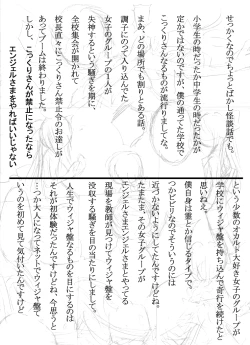 せっかくなのでちょっとばかし怪談話でも。
小学生の時だったか中学生の時だったかが
定かではないのですが、僕の通ってた学校で
こっくりさんなるものが流行りましてな。
まあ、どの場所でも割りとある話。
調子にのって入り込んでた
女子のグループの1人が
失神するという騒ぎを期に、
全校集会が開かれて
校長直々にこっくりさん禁止令のお達しが
あってブームは終わりました。
しかし、こっくりさんが禁止になったなら
エンジェルさまをやればいいじゃない
という少数のオカルト大好き女子のグループが
学校にウィジャ盤を持ち込んで奇行を続けたと
思いねぇ。
僕自身は霊とか信じるタイプで、
つかビビりなのでそういうのには
近づかないようにしてたんですけどね。
たまたま、その女子のグループが
エンジェルさまエンジェルさまとやってる
現場を教師が見つけてウィジャ盤を
没収する騒ぎを目の当たりにしまして。
人生でウィジャ盤なるものを目にするのは
それが初体験だったんですけどね、今思うと
…つか大人になってネットでウィジャ盤て
いうのを初めて見て気付いたんですけど